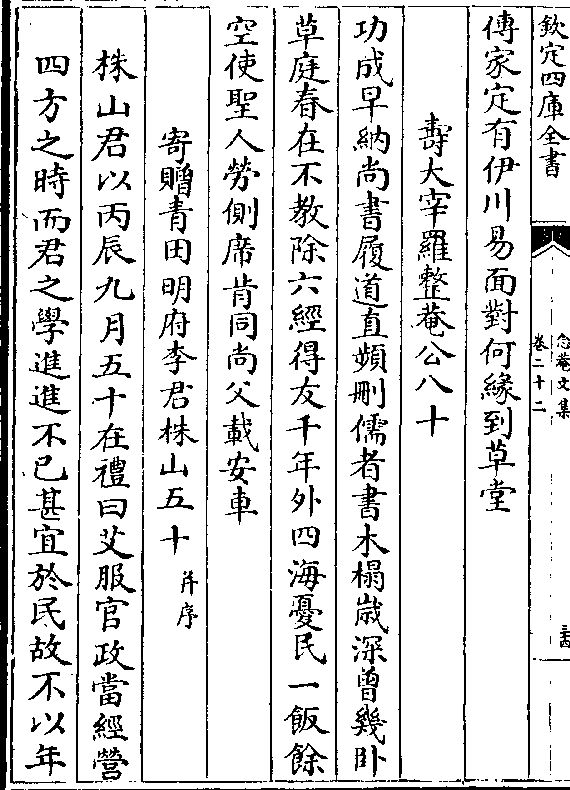 欽定四庫全書
念菴文集
卷二十二
傳家定有伊川易面對何緣到草堂
壽大宰羅整菴公八十
功成早納尚書履道直頻刪儒者書木榻歲深曾幾卧
草庭春在不教除六經得友千年外四海憂民一飯餘
空使聖人勞側席肯同尚父載安車
寄贈青田明府李君株山五十 并序
株山君以丙辰九月五十在禮曰艾服官政當經營
四方之時而君之學進進不已甚宜於民故不以年